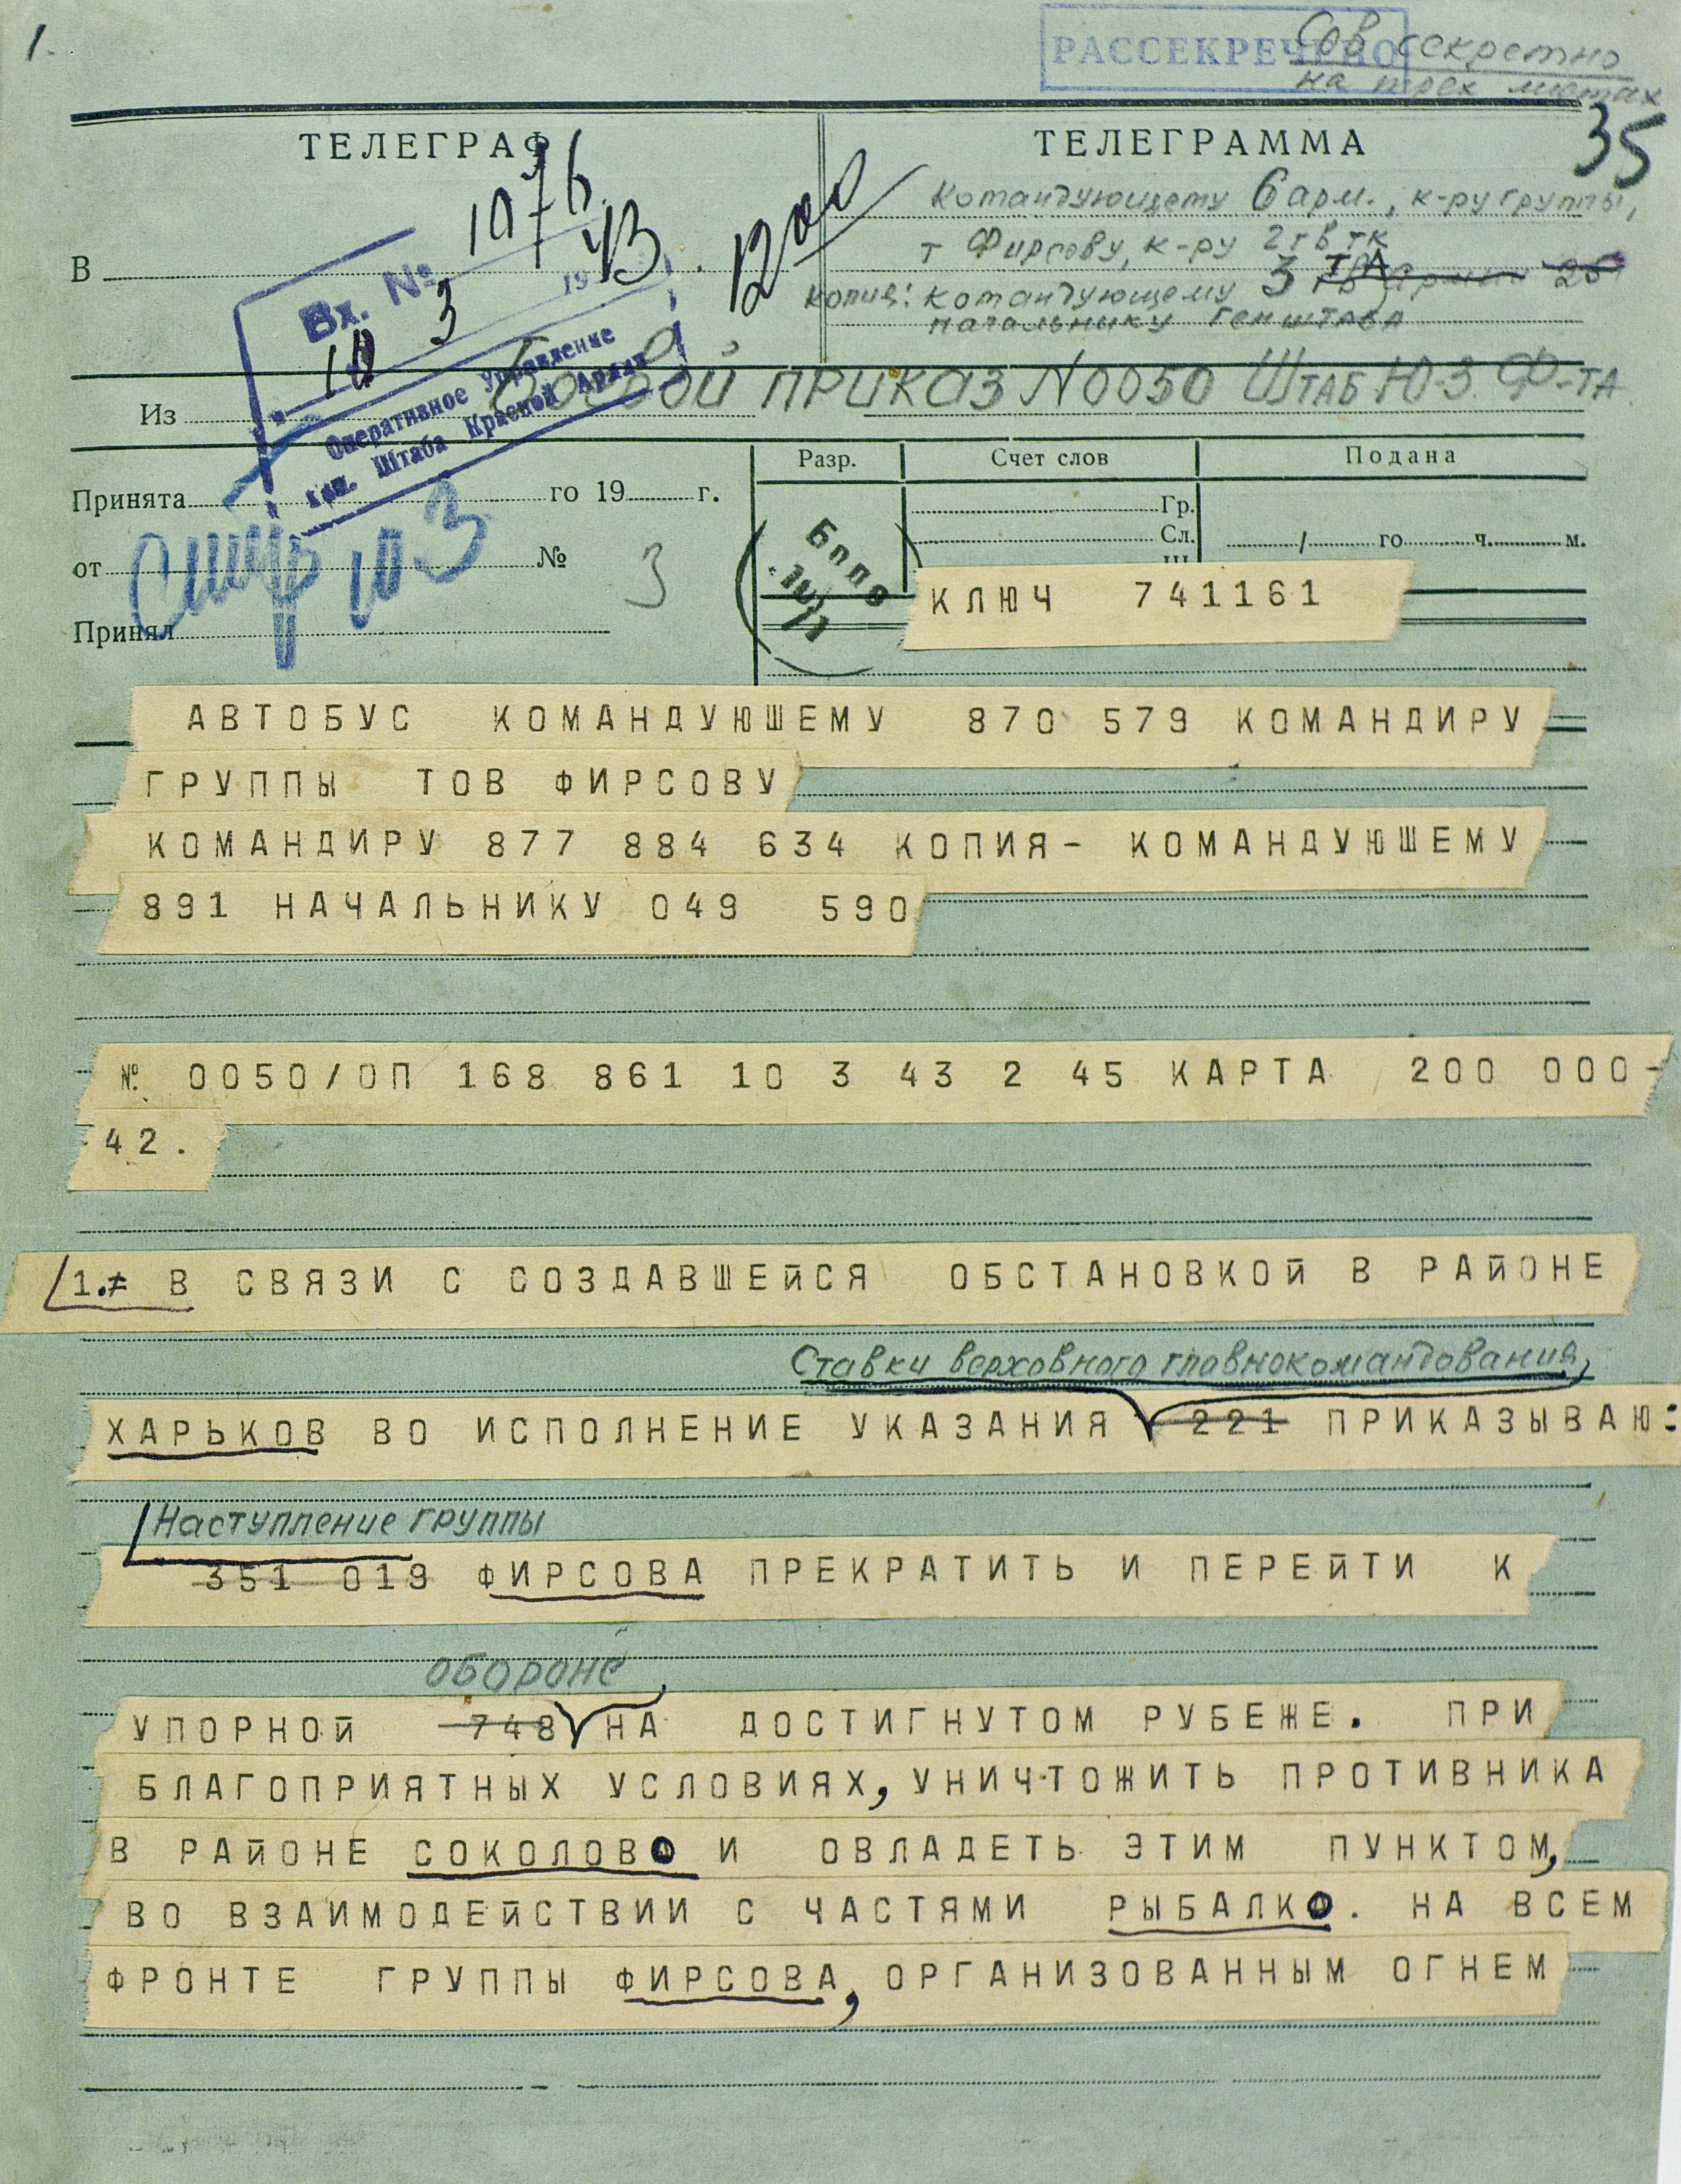 1.
РАССЕКРЕЧЕНО
Сов секретно
на трех листах
35
ТЕЛЕГРАФ
ТЕЛЕГРАММА
1076
43
1200
В
командующему 6 арм., к-ру группы,
т Фирсову, к-ру 2 гв тк
копия: командующему 3 ТА
начальнику генштаба
Вх. №
10 3
19
Оперативное управление
Ген. Штаба Красной Армии
Из
Боевой приказ N0050 Штаб Ю-З. Ф-та.
Принята го 19 г.
Разр.
Счет слов
Подана
Гр.
Сл.
/ го ч. м.
от №
3
10 3
Принял
КЛЮЧ 741161
АВТОБУС КОМАНДУЮШЕМУ 870 579 КОМАНДИРУ
ГРУППЫ ТОВ ФИРСОВУ
КОМАНДИРУ 877 884 634 КОПИЯ- КОМАНДУЮШЕМУ
891 НАЧАЛЬНИКУ 049 590
№ 0050/ОП 168 861 10 3 43 2 45 КАРТА 200 000-
42.
1.= В СВЯЗИ С СОЗДАВШЕЙСЯ ОБСТАНОВКОЙ В РАЙОНЕ
Ставки верховного главнокомандования,
ХАРЬКОВ ВО ИСПОЛНЕНИЕ УКАЗАНИЯ 221 ПРИКАЗЫВАЮ:
Наступление группы
351 019 ФИРСОВА ПРЕКРАТИТЬ И ПЕРЕЙТИ К
обороне
УПОРНОЙ 748 НА ДОСТИГНУТОМ РУБЕЖЕ. ПРИ
БЛАГОПРИЯТНЫХ УСЛОВИЯХ, УНИЧТОЖИТЬ ПРОТИВНИКА
В РАЙОНЕ СОКОЛОВО И ОВЛАДЕТЬ ЭТИМ ПУНКТОМ,
ВО ВЗАИМОДЕЙСТВИИ С ЧАСТЯМИ РЫБАЛКО. НА ВСЕМ
ФРОНТЕ ГРУППЫ ФИРСОВА, ОРГАНИЗОВАННЫМ ОГНЕМ